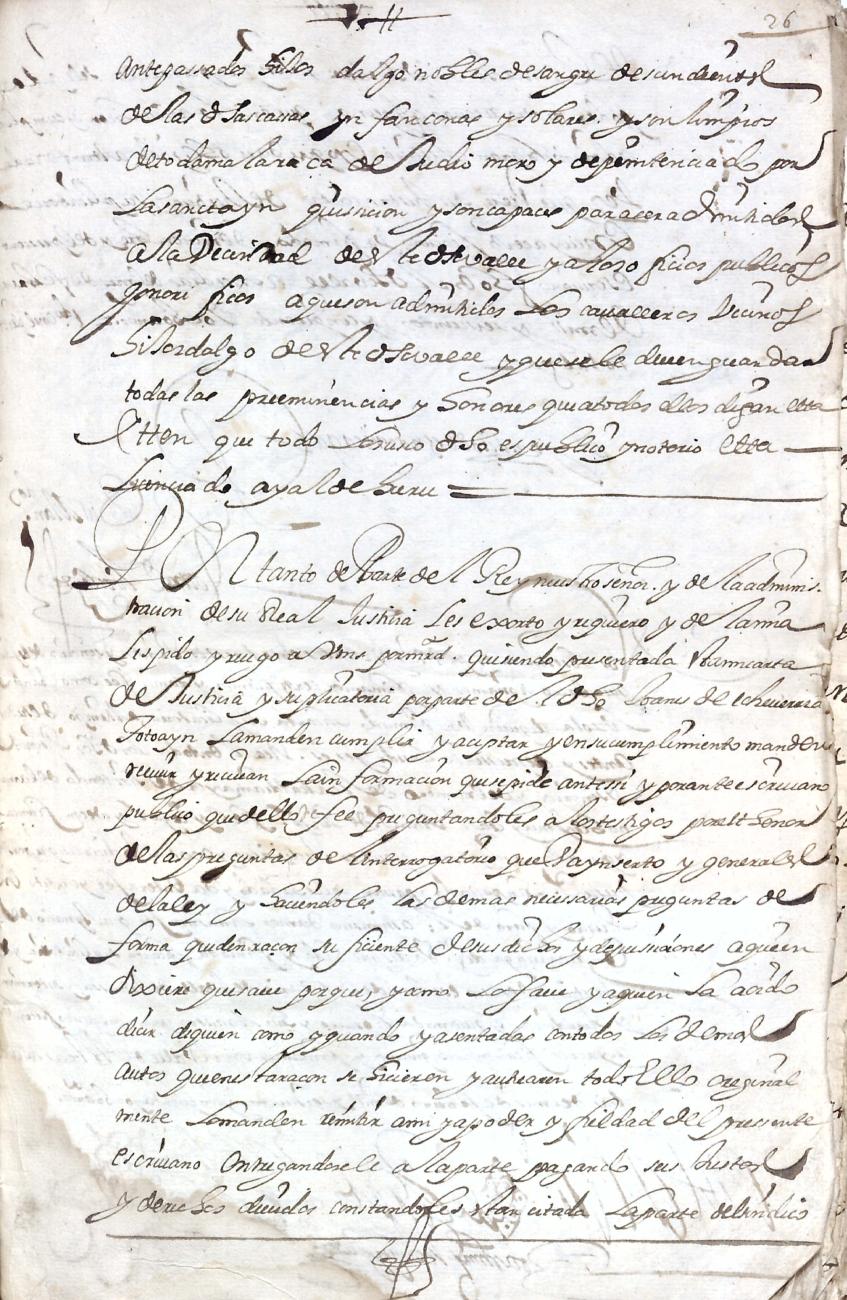 26
antepassados hijos dalgo nobles de sangre desendientes
de las dhas cassas ynfançonas y solares. y son limpios
de toda mala raça de Judio moro y de penitenciado por
la sancta ynquisicion y son capaces para ser admitidos
a la Vecindad de este dho valle y a los oficios publicos
honorificos a que son admitidos los cavalleros Vecinos
hijosdalgo de este dho valle y que se le deven guardar
todas las preeminencias y honores que a todos ellos digan etta
Itten que todo lo suso dho es publico y notorio etta
Licenciado ayal de
Por tanto de Parte del Rey nuestro señor. y de la adminis-
tracion de su Real Justicia les exorto y requiero y de la mia
les pido y ruego a Vms por mrd. que siendo presentada esta mi carta
de Justicia y suplicatoria por parte del dho Joanes de echeverria
la manden cumplir y aceptar y en su cumplimiento manden
recivir y recivan la informacion que se pide ante si y por ante escrivano
publico que dello de fee preguntandoles a los testigos por el thenor
de las preguntas del Interrogatorio que va ynserto y generales
de la ley y haciendoles las demas necessarias preguntas de
forma que den raçon suficiente de sus dichos y deposiciones a quien
dixiere que save por que, y como lo save y a quien lo a oido
decir de quien como y quando y asentadas con todos los demas
autos que en esta raçon se hicieren y autuaren todo Ello original
mente lo manden remitir a mi y a poder y fieldad del pressente
escrivano entregandosele a la parte pagando sus Justos
y derechos devidos constandoles estar citada la parte del sindico